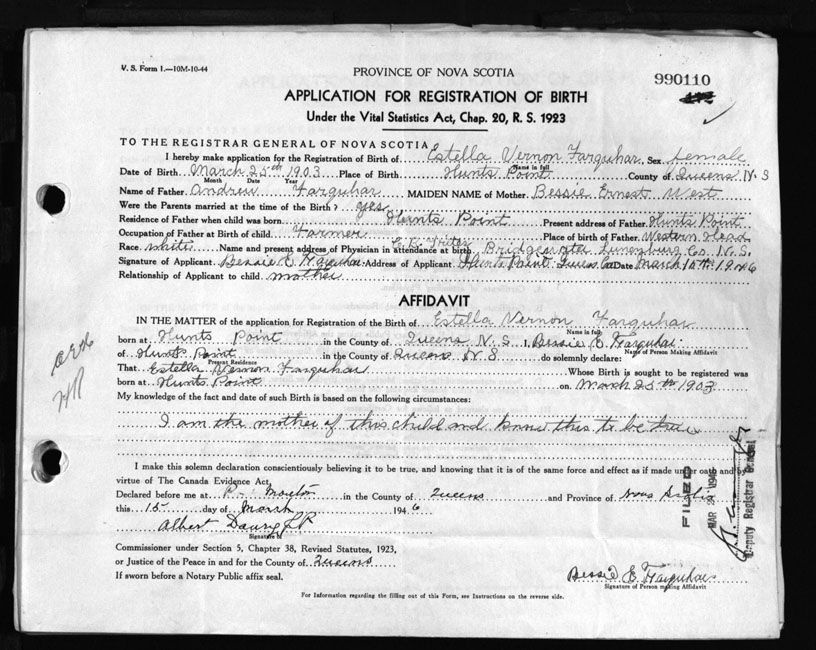 V. S. Form 1.—10M-10-44
PROVINCE OF NOVA SCOTIA
990110
APPLICATION FOR REGISTRATION OF BIRTH
Under the Vital Statistics Act, Chap. 20, R. S. 1923
TO THE REGISTRAR GENERAL OF NOVA SCOTIA
I hereby make application for the Registration of Birth of Estella Vernon Farquhar Sex female
Name in full
Date of Birth March 25th 1903 Place of Birth Hunts Point County of Queens N. S
Month Date Year
Name of Father Andrew Farquhar MAIDEN NAME of Mother Bessie Ernest West
Were the Parents married at the time of Birth? yes
Residence of Father when child was born Hunts Point Present address of Father Hunts Point
Occupation of Father at Birth of child Farmer Place of birth of Father Western Head
Race white Name and present address of Physician in attendance at birth Bridgewater Lunenburg Co. N. S.
Signature of Applicant Bessie E Farquhar Address of Applicant Hunts Point Queens Co Date March 15th 1946
Relationship of Applicant to child mother
AFFIDAVIT
IN THE MATTER of the application for Registration of the Birth of Estella Vernon Farquhar
Name in full
born at Hunts Point in the County of Queens N. S I, Bessie E. Farquhar
Name of Person Making Affidavit
of Hunts Point in the County of Queens N. S do solemnly declare:
Present Residence
That Estella Vernon Farquhar Whose Birth is sought to be registered was
born at Hunts Point on March 25th 1903
My knowledge of the fact and date of such Birth is based on the following circumstances:
I am the mother of this child and know this to be true
I make this solemn declaration conscientiously believing it to be true, and knowing that it is of the same force and effect as if made under oath and by
virtue of The Canada Evidence Act,
Declared before me at Pr. Mouton in the County of Queens and Province of Nova Scotia
this 15 day of March 1946
Albert Daury J P
Signature of
Commissioner under Section 5, Chapter 38, Revised Statutes, 1923,
or Justice of the Peace in and for the County of Queens
If sworn before a Notary Public affix seal.
Bessie E Farquhar
Signature of Person making Affidavit
For Information regarding the filling out of this Form, see Instructions on the reverse side.
FILED
MAR 21 1946
Deputy Registrar General